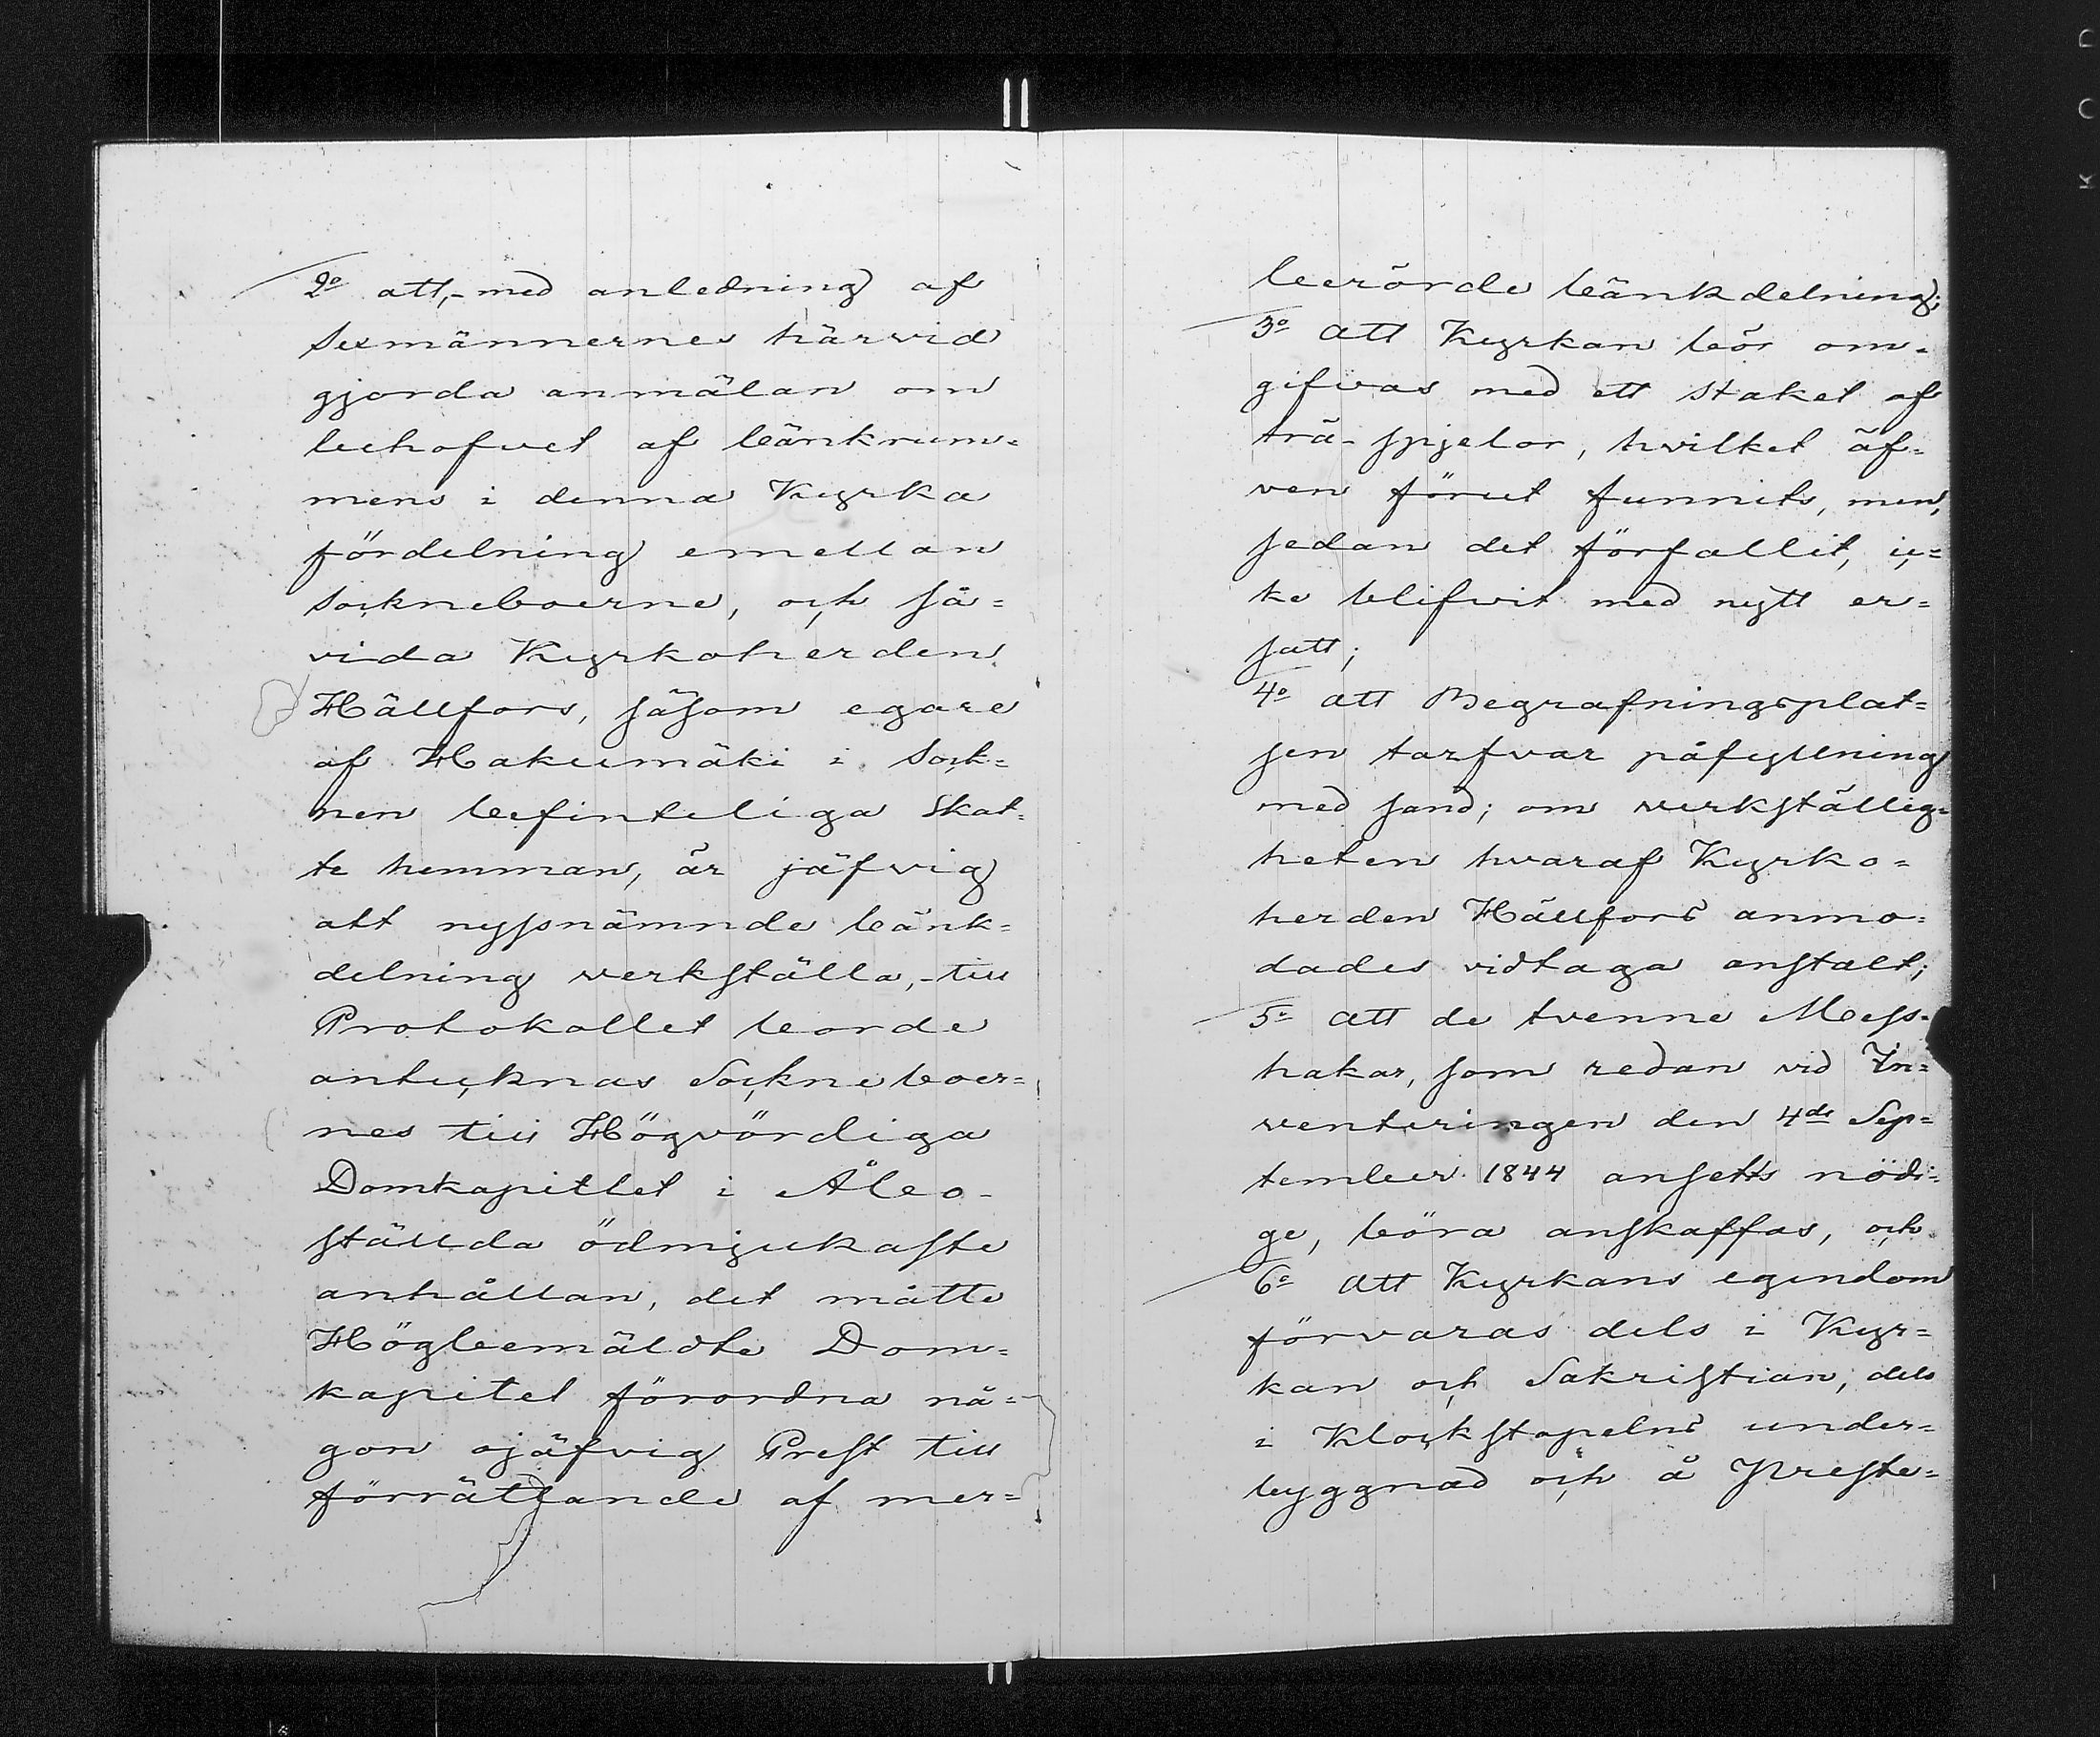 2o att,- med anledning af
Sexmännernes härvid
gjorda anmälan om
behofvet af bänkrum=
mens i denna Kyrka
fördelning emellan
Sockneboerne, och så=
vida Kyrkoherden
Hällfors, såsom egare
af Hakumäki i Sock=
nen befinteliga Skat=
te hemman, är jäfvig
att nyssnämnde bänk=
delning verkställa,- till
Protokollet borde
antecknas Sockneboer=
nes till Högvördiga
Domkapitlet i Åbo
ställda ödmjukaste
anhållan, det måtte
Högbemäldte Dom=
kapitel förordna nå=
gon ojäfvig Prest till
förrättande af mer=
berörde bänkdelning;
3o att Kyrkan bör om=
gifvas med ett staket af
trä-spjelor, hvilket äf=
ven förut funnits, men,
sedan det förfallit, ic=
ke blifvit med nytt er=
satt;
4o att Begrafningsplat=
sen tarfvar påfyllning
med sand; om verkställig=
heten hvaraf Kyrko=
herden Hällfors anmo=
dades vidtaga anstalt;
5o att de tvenne Mess=
hakar, som redan vid In=
venteringen den 4de Sep=
tember 1844 ansetts nödi=
ge, böra anskaffas, och
6o att Kyrkans egendom
förvaras dels i Kyr=
kan och Sakristian, dels
i Klockstapelns under=
byggnad och å Preste=